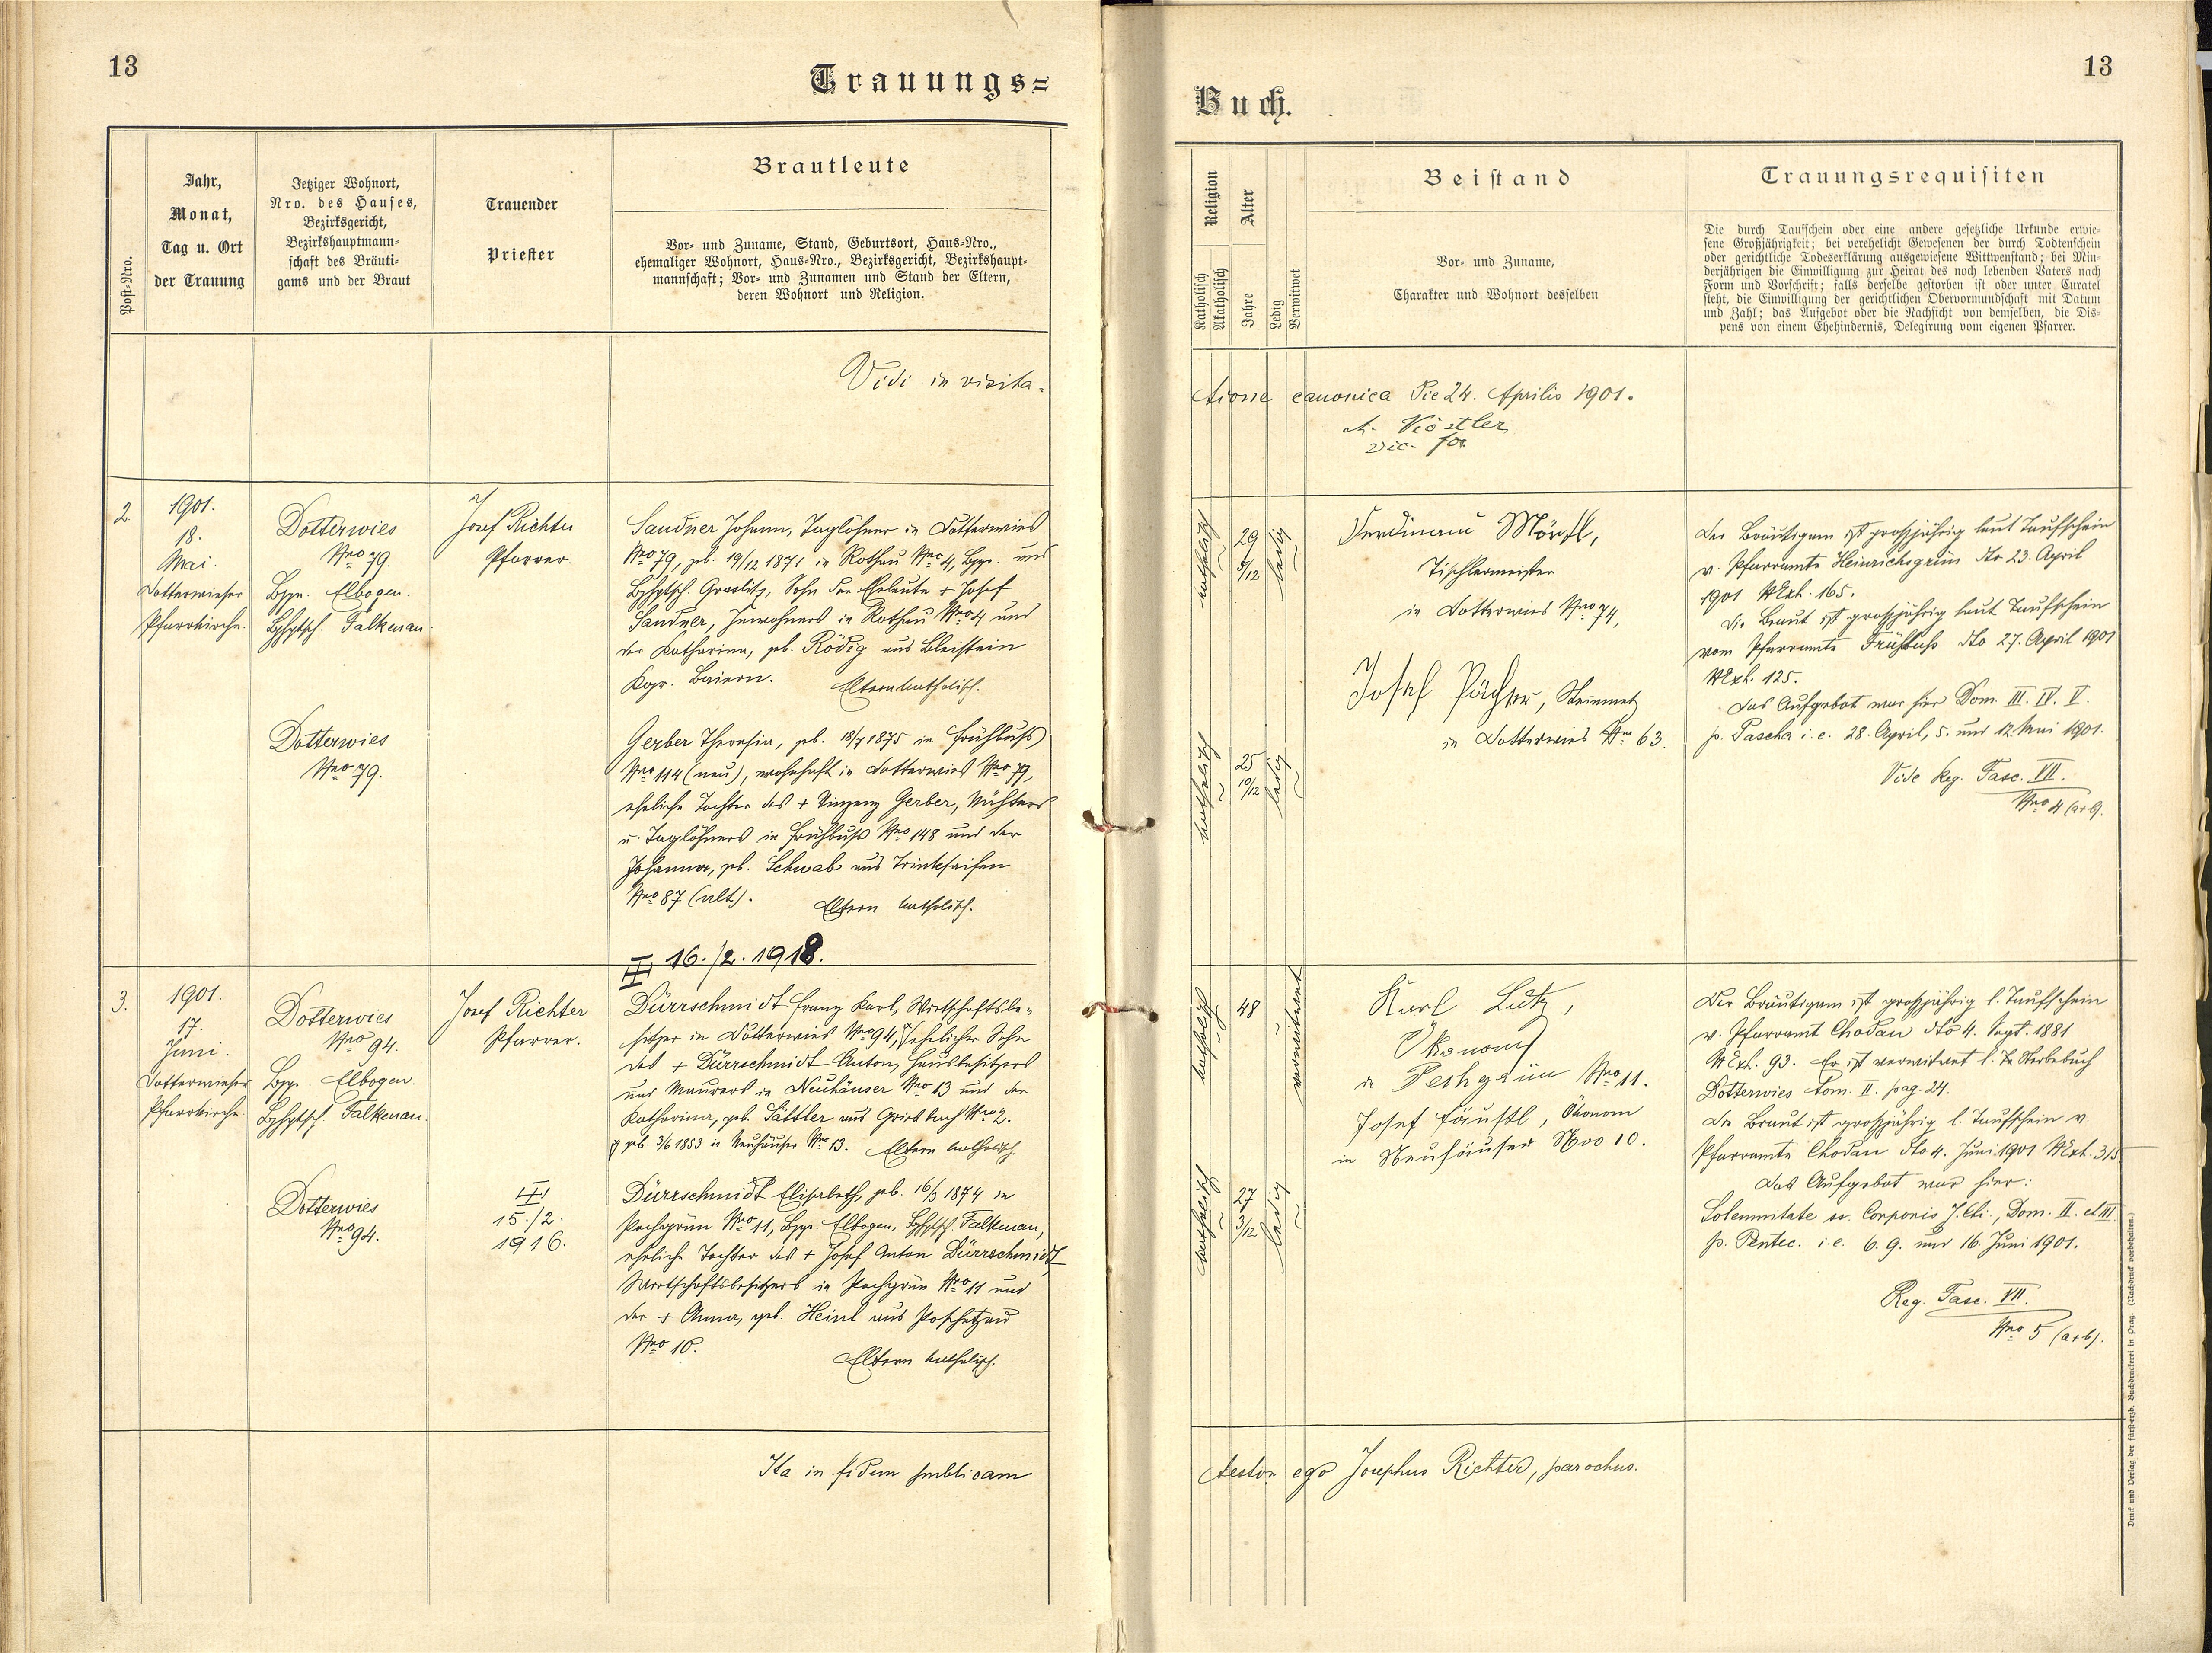 13
Trauungs=
Post-Nro.
Jahr,
Monat,
Tag u. Ort
der Trauung
Jetziger Wohnort,
Nro. des Hauses,
Bezirksgericht,
Bezirkshauptmann-
schaft des Bräuti-
gams und der Braut
Trauender
Priester
Brautleute
Vor- und Zuname, Stand, Geburtsort, Haus-Nro.,
ehemaliger Wohnort, Haus-Nro., Bezirksgericht, Bezirkshaupt-
mannschaft; Vor- und Zunamen und Stand der Eltern,
deren Wohnort und Religion.
Vidi in visita-
2.
1901.
18.
Mai.
Dotterwieser
Pfarrkirche.
Dotterwies
Nro 79.
Bzgr. Elbogen.
Bzhptsch. Falkenau.
Josef Richter
Pfarrer.
Sandner Johann, Taglöhner in Dotterwies
Nro 79, geb. 19/12 1871 in Rothau Nro 4, Bzgr. und
Bzhptsch. Graslitz, Sohn der Eheleute + Josef
Sandner, Inwohners in Rothau Nro 4 und
der Katharina, geb. Rödig aus Bleistein
Kgr. Baiern. Eltern katholisch.
Dotterwies
Nro 79.
Gerber Theresia, geb. 18/7 1875 in Frühbuß
Nro 114 (neu), wohnhaft in Dotterwies Nro 79,
eheliche Tochter des + Vinzenz Gerber,
u. Taglöhners in Frühbuß Nro 148 und der
Johanna, geb. Schwab aus Trinkseifen
Nro 87 (alt). Eltern katholisch.
16./2. 1918.
3.
1901.
17.
Juni.
Dotterwieser
Pfarrkirche.
Dotterwies
Nro 94.
Bzgr. Elbogen.
Bzhptsch. Falkenau.
Josef Richter
Pfarrer.
Dürrschmidt Franz Karl, Wirtschaftsbe-
sitzer in Dotterwies Nro 94, ehelicher Sohn
des + Dürrschmidt Anton, Hausbesitzers
und Maurers in Neuhäuser Nro 13 und der
Katharina, geb. Sattler aus Griesbach Nro 2.
geb. 3/6 1853 in Neuhäuser Nro 13. Eltern katholisch.
Dotterwies
Nro 94.
15./2.
1916.
Dürrschmidt Elisabeth, geb. 16/3 1874 in
Pechgrün Nro 11, Bzgr. Elbogen, Bzhptsch. Falkenau,
eheliche Tochter des + Josef Anton Dürrschmidt,
Wirtschaftsbesitzers in Pechgrün Nro 11 und
der + Anna, geb. Heinl aus Poschetzau
Nro 10.
Eltern katholisch.
Ita in fidem publicam
13
Buch.
Religion
Katholisch
Akatholisch
Alter
Jahre
Ledig
Verwitwet
Beistand
Vor- und Zuname,
Charakter und Wohnort desselben
Trauungsrequisiten
Die durch Taufschein oder eine andere gesetzliche Urkunde erwie-
sene Großjährigkeit; bei verehelicht Gewesenen der durch Todtenschein
oder gerichtliche Todeserklärung ausgewiesene Wittwenstand; bei Min-
derjährigen die Einwilligung zur Heirat des noch lebenden Vaters nach
Form und Vorschrift; falls derselbe gestorben ist oder unter Curatel
steht, die Einwilligung der gerichtlichen Obervormundschaft mit Datum
und Zahl; das Aufgebot oder die Nachsicht von demselben, die Dis-
pens von einem Ehehindernis, Delegirung vom eigenen Pfarrer.
tione canonica Die 24. Aprilis 1901.
A. Köstler
vic. for.
katholisch
29
5/12
ledig
Ferdinand
Tischlermeister
in Dotterwies Nro 74,
Josef Pächter, Steinmetz
in Dotterwies Nro 63.
Der Bräutigam ist großjährig laut Taufschein
v. Pfarramte Heinrichsgrün dto 23. April
1901 NExh. 165.
Die Braut ist großjährig laut Taufschein
vom Pfarramte Frühbuß dto 27. April 1901
NExh. 125.
Das Aufgebot war hier Dom. III. IV. V.
p. Pascha i. e. 28. April, 5. und 12. Mai 1901.
Vide Reg. Fasc. VII.
Nro 4 (a+b).
katholisch
25
10/12
ledig
katholisch
48
verwitwet
Karl Lutz,
Ökonom
in Pechgrün Nro 11.
Josef Fäustl, Ökonom
in Neuhäuser Nro 10.
Der Bräutigam ist großjährig l. Taufschein
v. Pfarramt Chodau dto 4. Sept. 1881
NExh. 93. Er ist verwitwet l. Sterbebuch
Dotterwies tom. II. pag. 24.
Die Braut ist großjährig l. Taufschein v.
Pfarramte Chodau dto 4. Juni 1901 NExh. 315.
Das Aufgebot war hier:
Solemnitate ss. Corporis J. Chi., Dom. II. et III.
p. Pentec. i. e. 6. 9. und 16. Juni 1901.
Reg. Fasc. VII.
Nro 5 (a+b).
katholisch
27
3/12
ledig
testor ego Josephus Richter, parochus.
Druck und Verlag der fürsterzb. Buchdruckerei in Prag. (Nachdruck vorbehalten.)